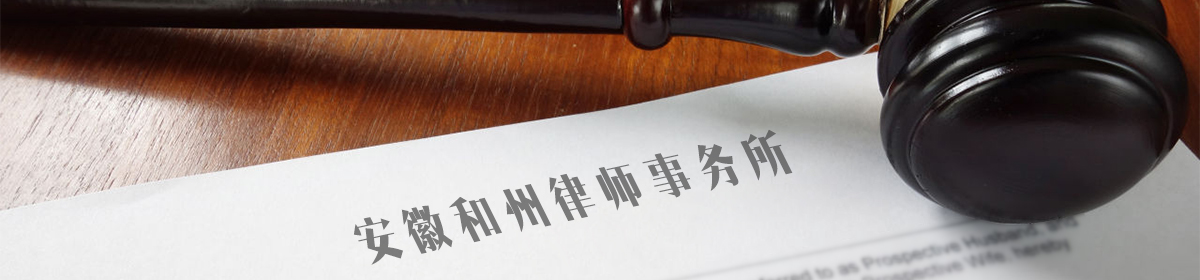 安徽和州律师事务所
ferred to as Prospective Husband, and
Prospective Wife, hereby